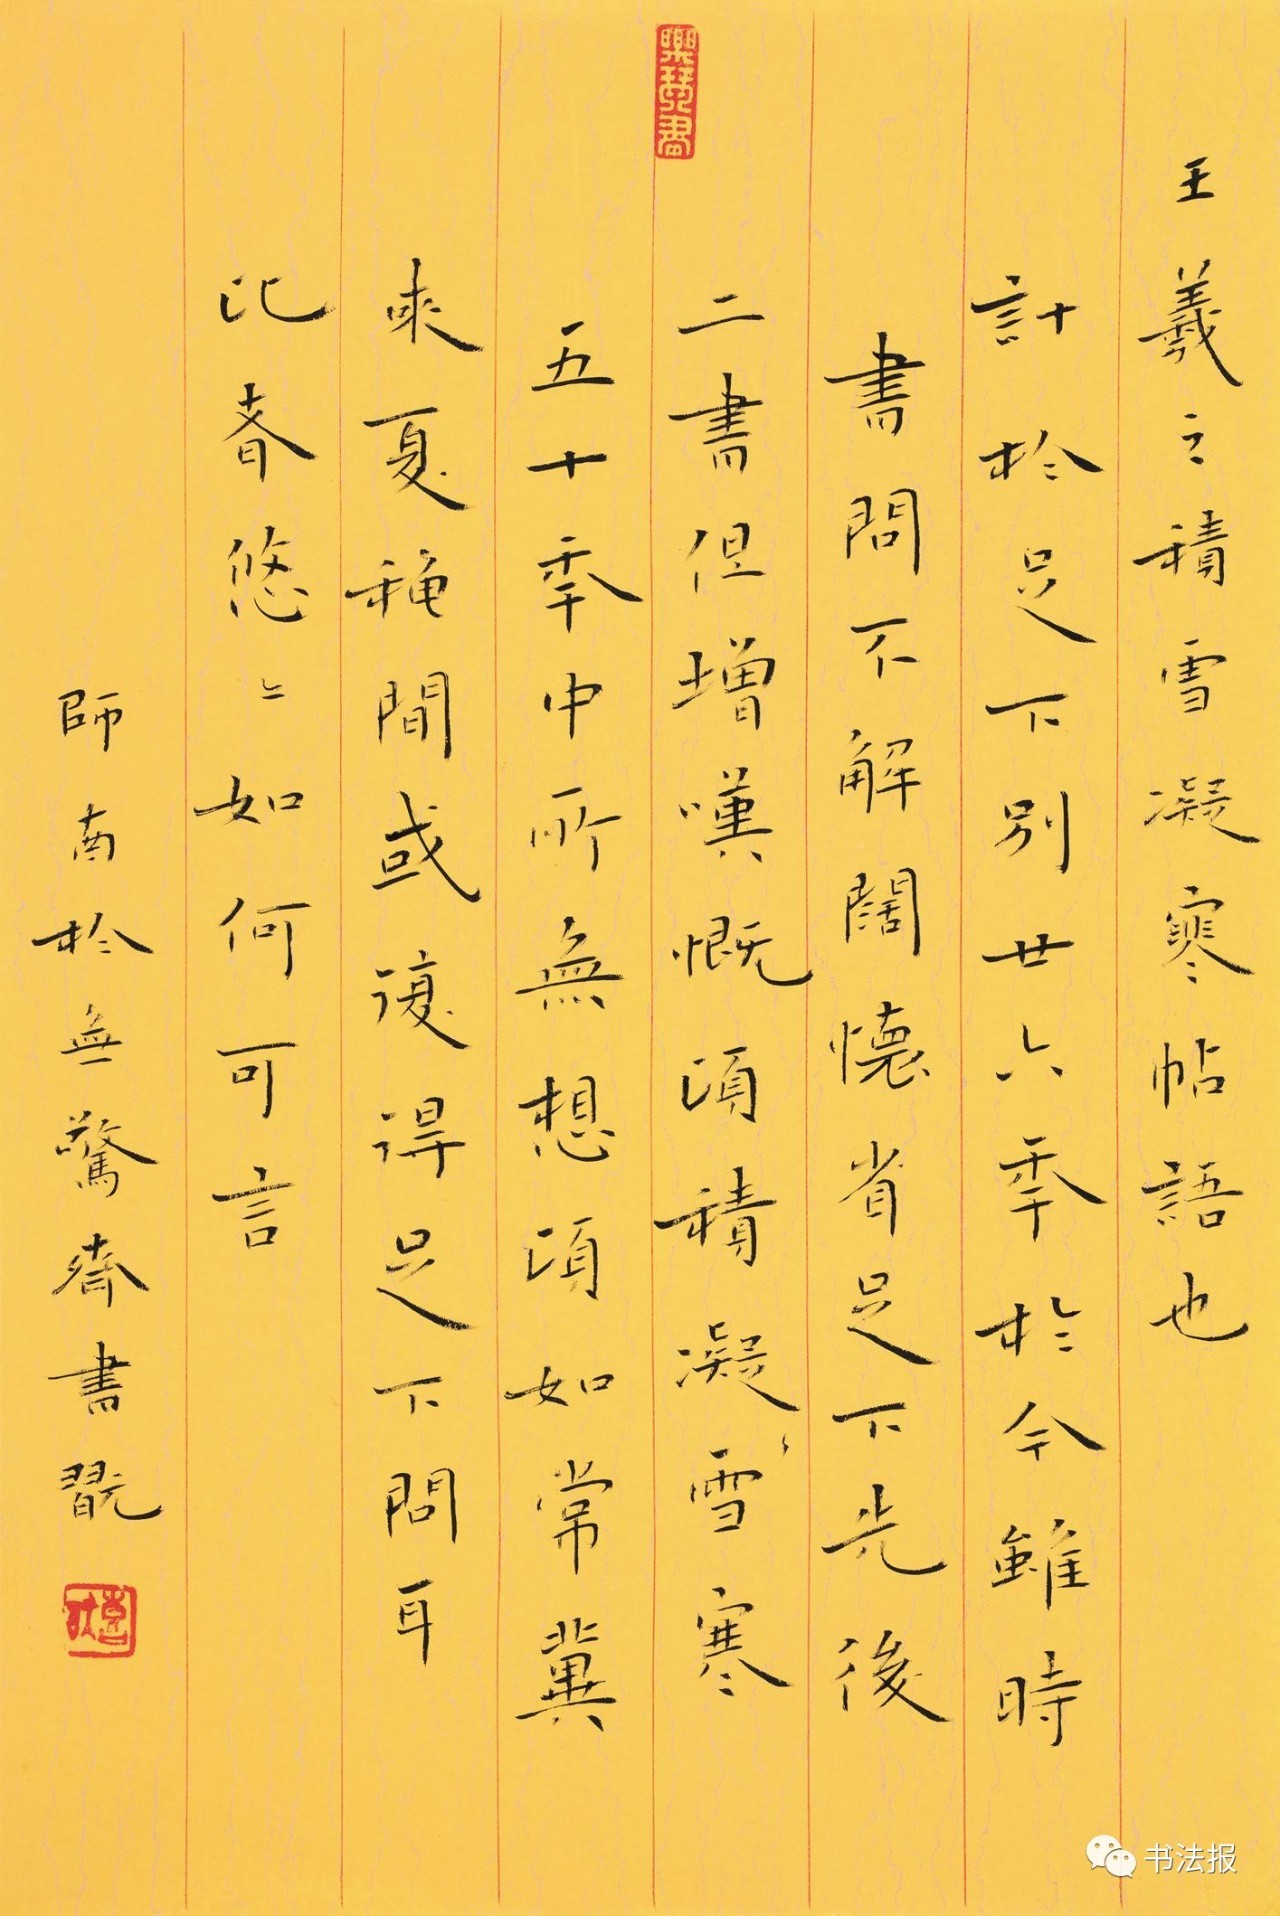 王羲之積雪凝寒帖語也
計於足下別廿六年於今雖時
書問不解闊懷省足下先後
二書但增嘆慨頃積凝雪寒
五十年中所無想頃如常冀
來夏秋間或復得足下問耳
比者悠〻如何可言
師南於無驚齋書翫
樂琴書
书法报